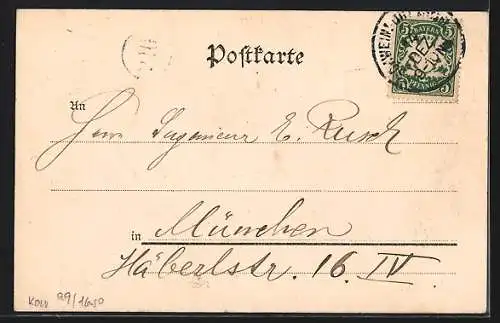 Postkarte
BAYERN
5 5
PFENNIG
DEZ
An
Herrn Ingenieur E. Rusch
in München
Häberlstr. 16 IV